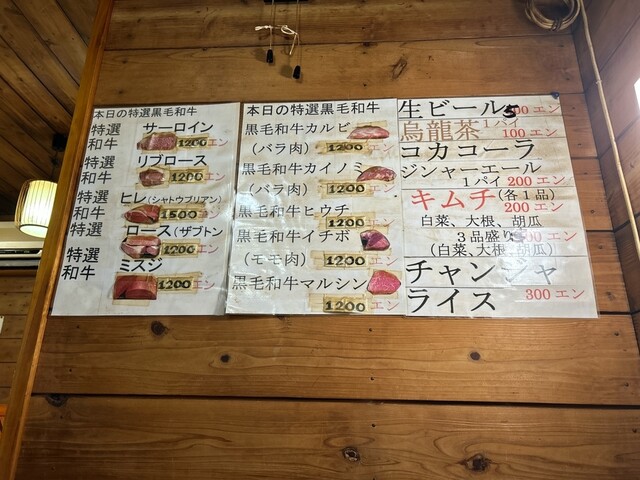 本日の特選黒毛和牛
特選
和牛
サーロイン
1200エン
特選
和牛
リブロース
1200エン
特選
和牛
ヒレ(シャトウブリアン)
1500エン
特選
ロース(ザブトン
1200エン
特選
和牛
ミスジ
1200エン
本日の特選黒毛和牛
黒毛和牛カルビ
(バラ肉) 1200エン
黒毛和牛カイノミ
(バラ肉) 1200エン
黒毛和牛ヒウチ
1200エン
黒毛和牛イチボ
(モモ肉) 1200エン
黒毛和牛マルシン
1200エン
生ビール 500エン
烏龍茶 1パイ 100エン
コカコーラ
ジンャーエール
1パイ 200エン
キムチ(各1品)
200エン
白菜、大根、胡瓜
3品盛り 00エン
(白菜、大根、胡瓜)
チャンジャ
ライス 300エン